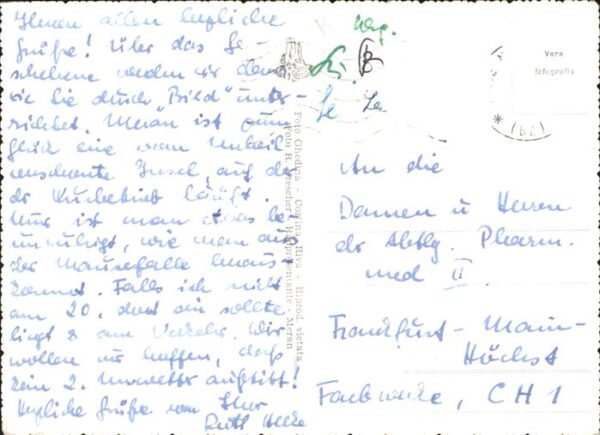 Ihnen allen herzliche
Grüße! Über das Ge-
schehene werden wir denn
wie Sie durch „Bild" unter-
richtet. Meran ist zum
Glück eine vom Unheil
verschonte Insel, auf der
der Kurbetrieb läuft
Nur ist man etwas be-
unruhigt, wie man aus
der Mausefalle heraus-
kommt. Falls ich nicht
am 20. dort sein sollte
liegt's am Verkehr. Wir
wollen nur hoffen, daß
kein 2. Unwetter auftritt!
Herzliche Grüße von Ihrer
Ruth
Foto Ghedina - Cortina
Riprod. vietata
Rappresentante - Meran
Vera
fotografia
An die
Damen u Herren
der Abtlg. Pharm.
med II.
Frankfurt - Main-
Höchst
Farbwerke, CH 1